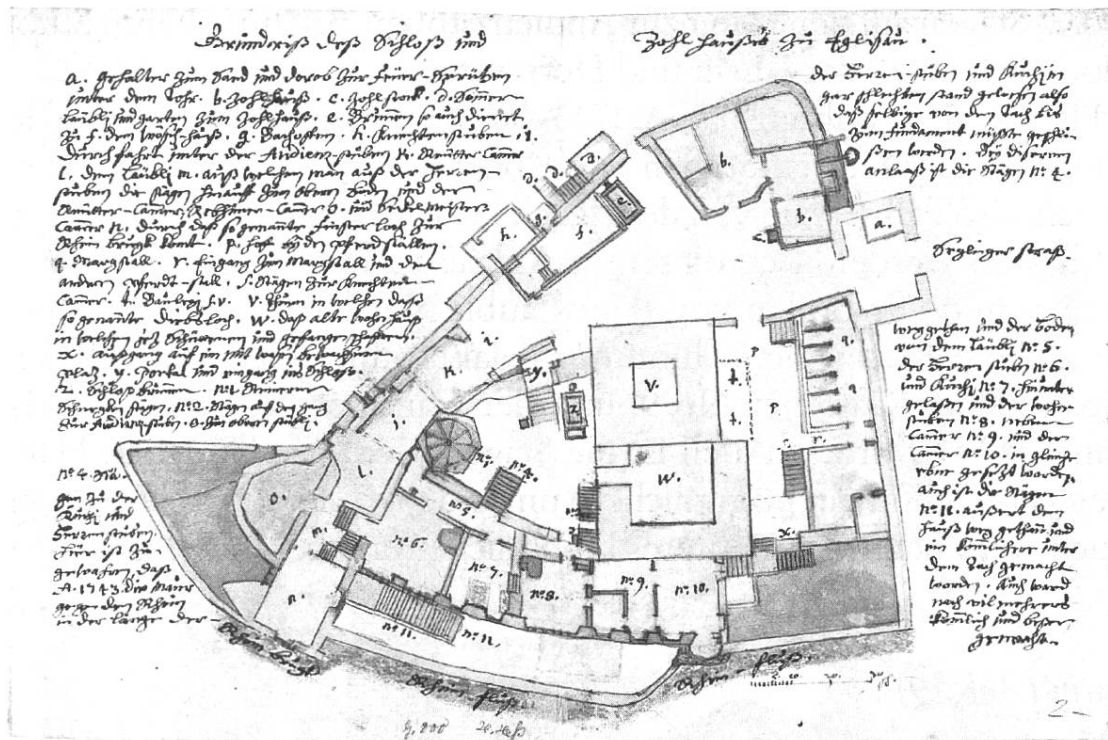 Grundriß deß Schloß und Zohl Haußes zu Eglisau.
a. gehalter zum Sand und darob zur feüer-Sprützen
unter dem Tohr. b. Zohlhauß. c. Zohlstock. d. Sommer
läubli und garten zum Zohlhauß. e. Brunnen so auch dienet
zu f. dem wöschhauß. g. Bachoffen. h. Knechtenstuben. i.
Durchfahrt unter der Audienz-stuben K. Cammer
l. dem läubli m. auß welchem man auß der Herren-
stuben die stägen hinauff zum obern boden und der
Cammer O. und
Camer n. durch daß so genante finster loch zur
Rhein brugk komt. p. hof bey den Pferdställen.
q. Margstall. r. Eingang zum Margstall und dem
anderen pferdt-stall. s. Stägen zur Knechten
Cammer. t. S.V. V. Thurn in welchem daß
so genante Diebsloch. W. daß alte wohnhauß
in welchem jetz und gefangenschafften.
x. Außgang auf ein mit wasen bewachsnen
platz. y. Portal und eingang ins Schloß.
z. Schloß brunnen. No 1. Steinerne
Schneggen stägen. No 2. Stägen auf den gang
zur Audienzstuben. 3. zum obern stübli.
No 4. Stä-
gen zu der
Kuchi und
Herren stuben.
hier ist zu
gewahren, daß
A. 1743. die Maur
gegen dem Rhein
in der länge der
der Herren-stuben und Kuchi in
gar schlechten stand gewesen also
daß selbige von dem tach bis
zum fundament müßte geschlis-
sen werden. Bey diserem
anlaaß ist die Stägen No 4.
weggethan und der boden
von dem läubli No 5.
der Herren stuben No 6.
und Kuchi No 7. hinunter
gelaßen und der wohn-
stuben No 8. neben
Camer No 9. und der
Camer No 10. in gleiche
ebne gesezt worden.
auch ist die Stägen
No 11. außert dem
hauß weg gethan und
ein komlichere unter
dem tach gemacht
worden. Auch ward
noch vil mehrers
komlich und beßer
gemacht.
Seglinger straß.
a.
b.
c.
d.
d.
e.
f.
g.
h.
h.
i.
K.
l.
m.
n.
o.
p.
p.
q.
q.
r.
r.
s.
t.
t.
V.
W.
x.
y.
z
No 1.
No 4.
No 5.
No 6.
No 7.
No 8.
No 9.
No 10.
No 11.
No 12.
Rhein brugk
Rhein fluß
Rhein fluß.
2